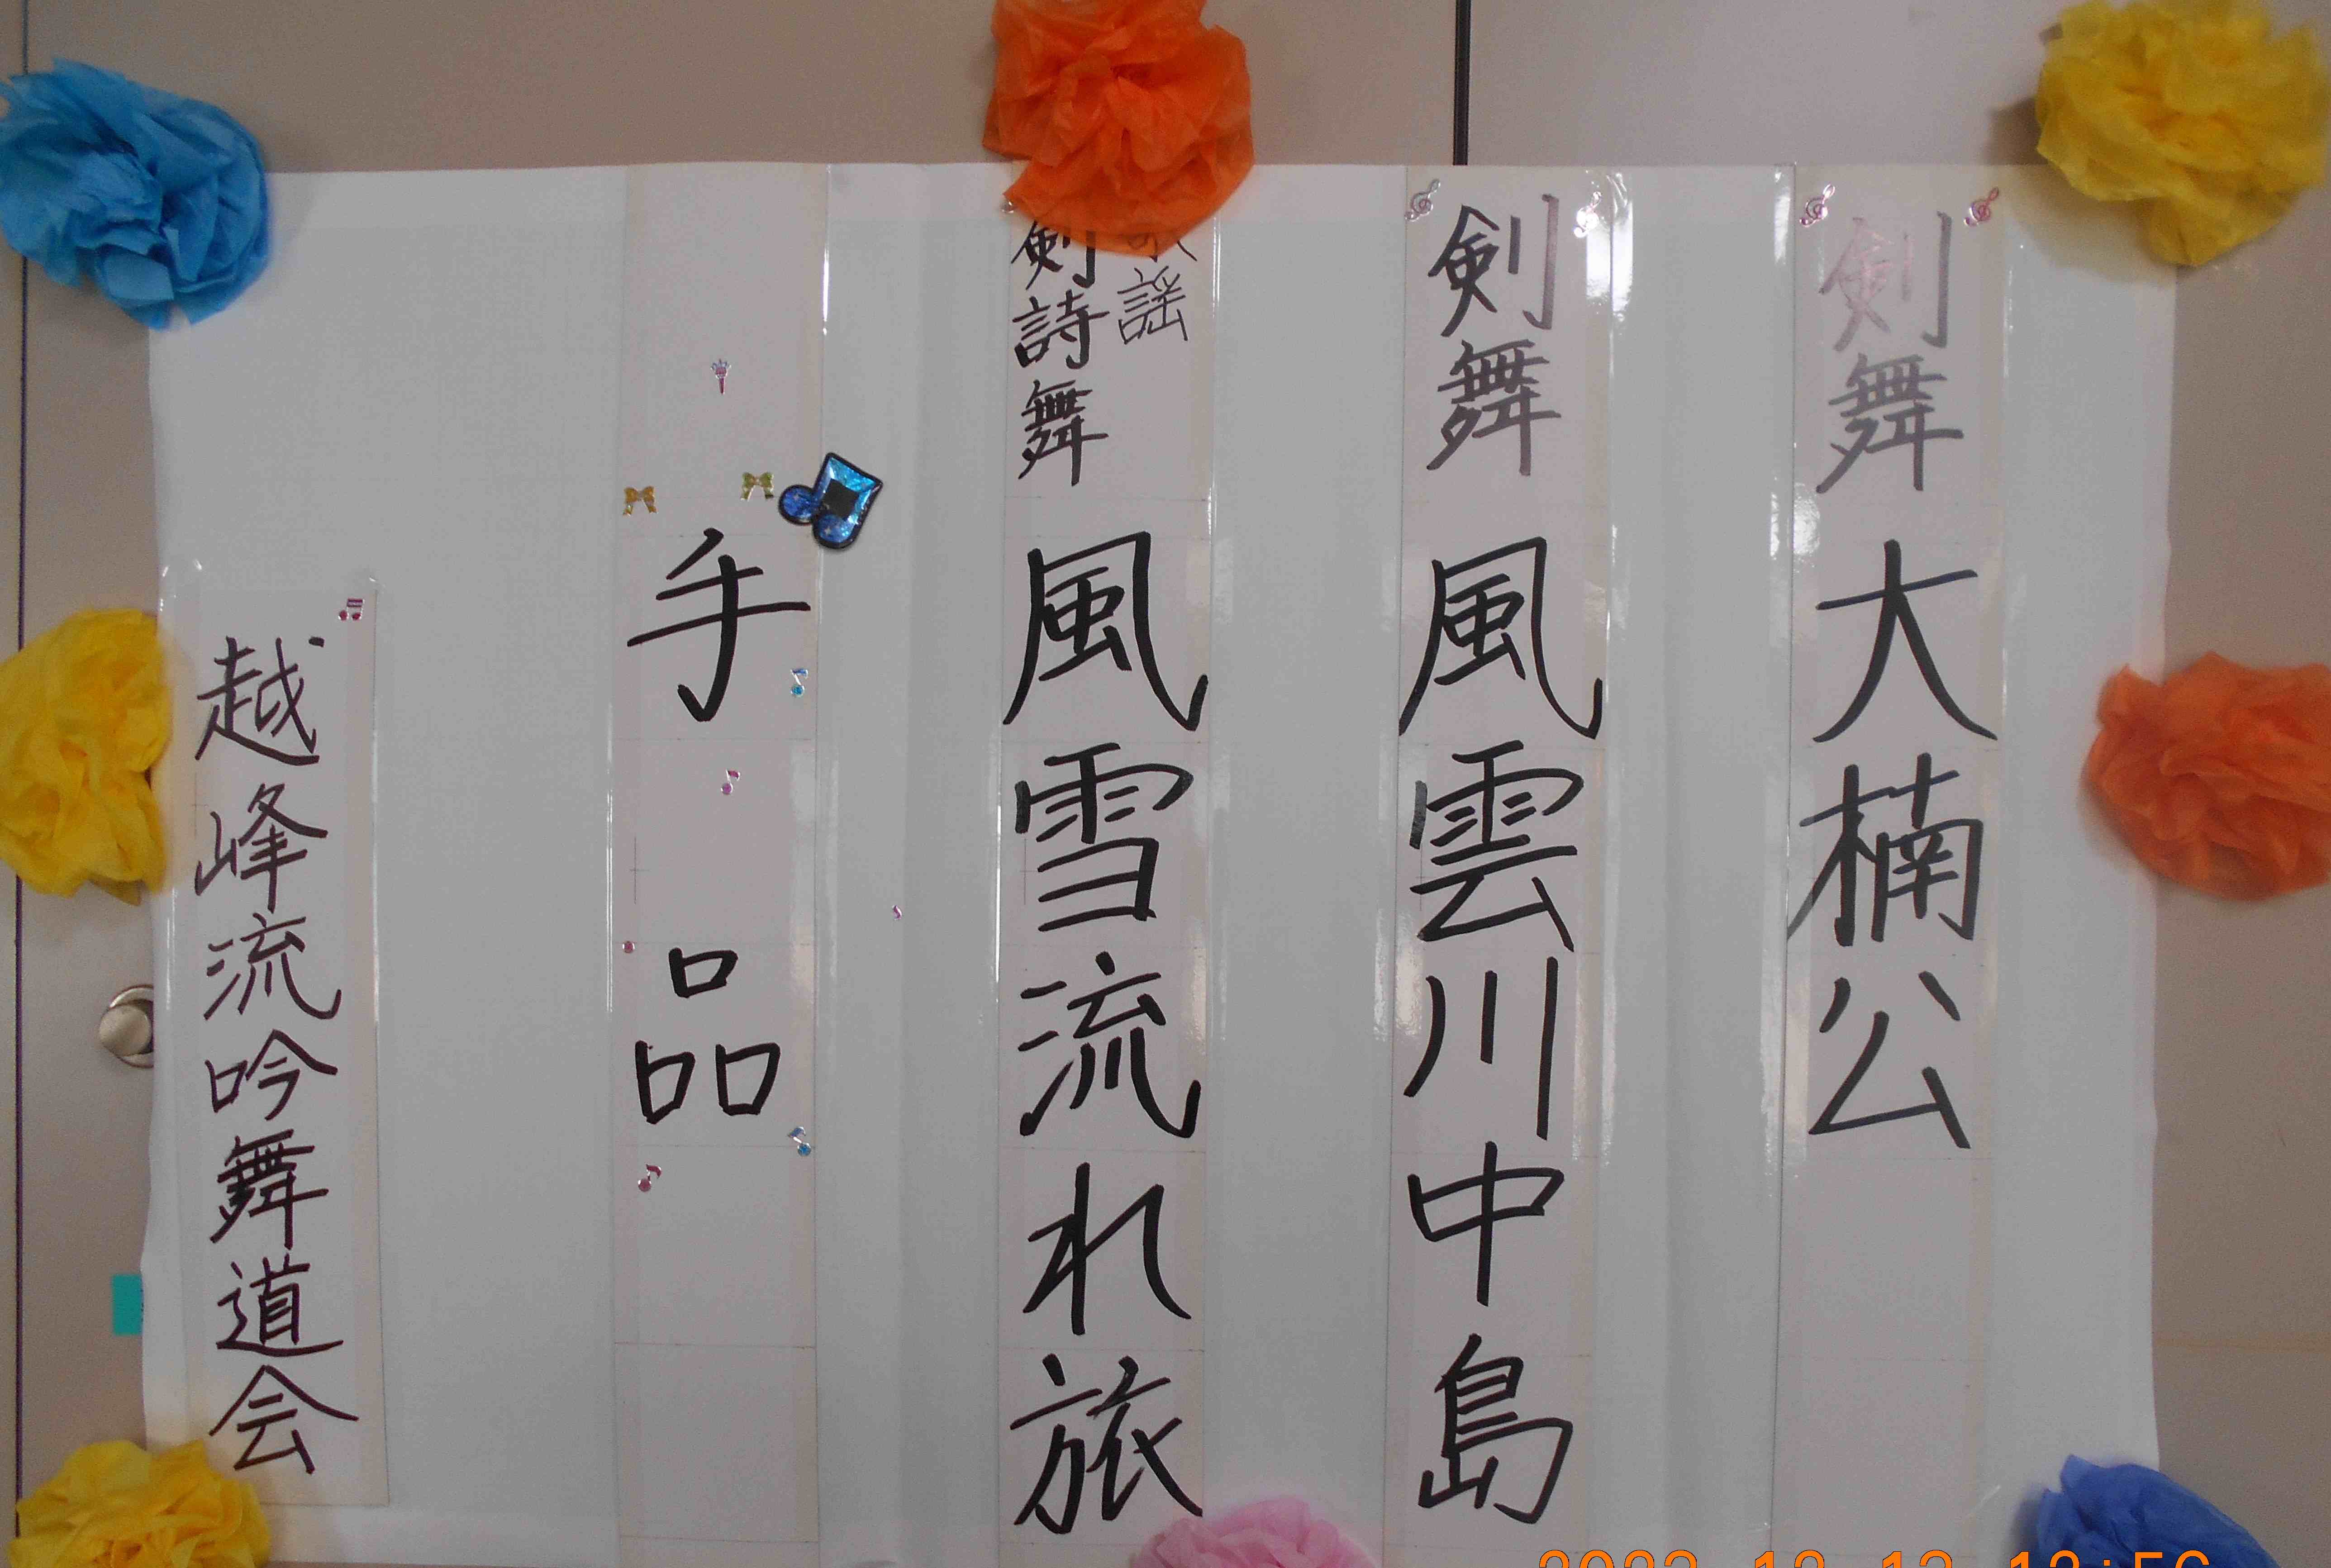 剣舞 大楠公
剣舞 風雲川中島
謡
剣詩舞 風雪流れ旅
手品
越峰流吟舞道会